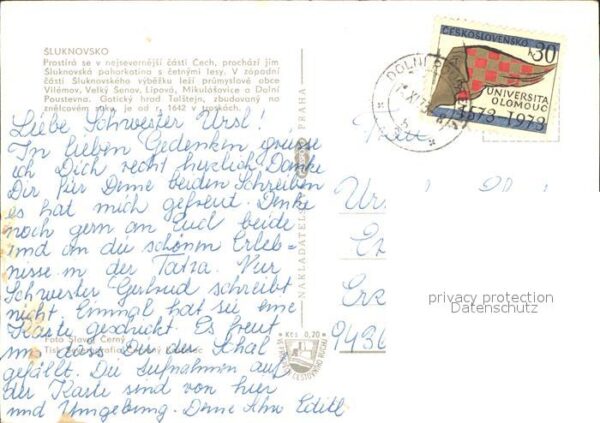 ŠLUKNOVSKO
Prostírá se v nejsevernější části Čech, prochází jím
Šluknovská pahorkatina s četnými lesy. V západní
části Šluknovského výběžku leží průmyslové obce
Vilémov, Velký Šenov, Lipová, Mikulášovice a Dolní
Poustevna. Gotický hrad Tolštejn, zbudovaný na
znělcovém suku, je od r. 1642 v troskách.
Liebe Schwester Ursl!
In lieben Gedenken grüsse
ich Dich recht herzlich. Danke
Dir für Deine beiden Schreiben
es hat mich gefreut. Denke
noch gern an Euch beide
und an die schönen Erleb-
nisse in der Tatra. Nur
Schwester Gertrud schreibt
nicht. Einmal hat sie eine
Karte geschickt. Es freut
uns dass Dir der Schal
gefällt. Die Aufnahmen auf
der Karte sind von hier
und Umgebung. Deine
Foto Slavoj Černý
PRAHA
NAKLADATEL
Kčs 0,20
ČESKOSLOVENSKO
30
UNIVERSITA
OLOMOUC
1573-1973
DOLNÍ
Ur
Erz
9436
privacy protection
Datenschutz